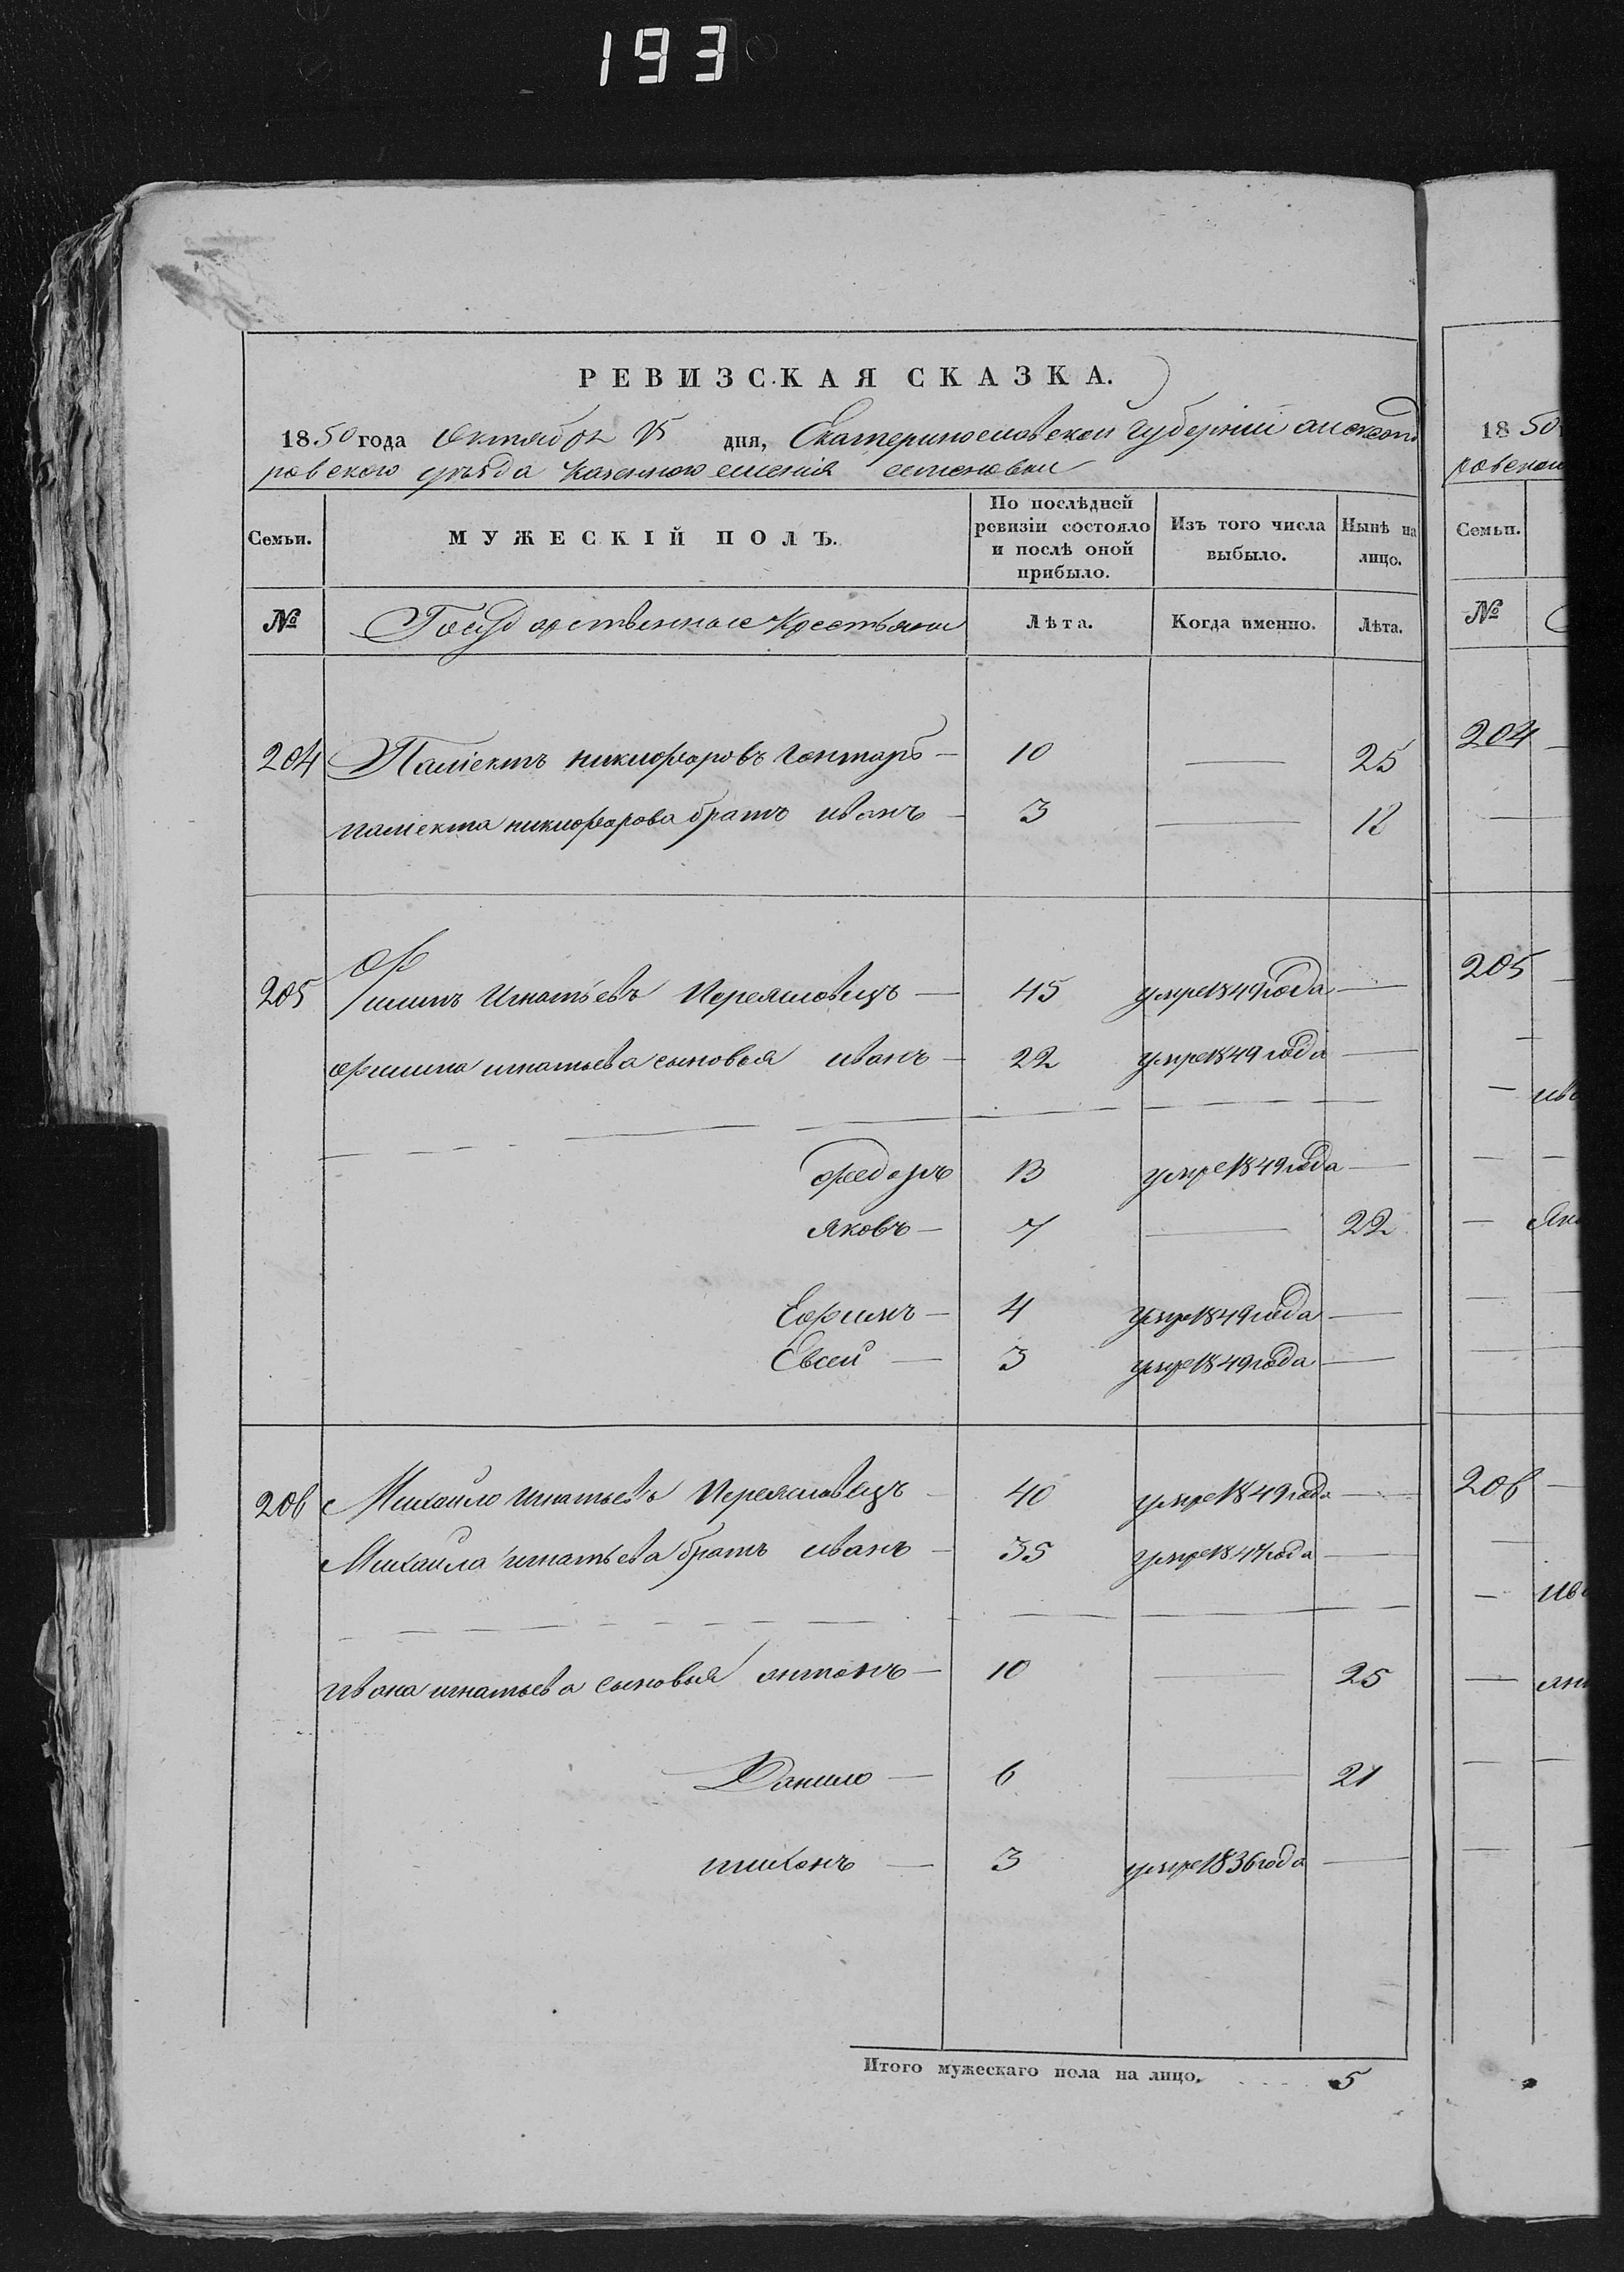 193
РЕВИЗСКАЯ СКАЗКА.
1850 года Октября 15 дня, Екатеринославской Губернии александ
ровского уѣзда казенного селения семеновки
Семьи.
МУЖЕСКІЙ ПОЛЪ.
По послѣдней ревизіи состояло и послѣ оной прибыло.
Изъ того числа выбыло.
Нынѣ на лицо.
№
Государственные Крестьяне
Лѣта.
Когда именно.
Лѣта.
204 никифоровъ Гонтарь — 10 — 25
никифорова братъ иванъ — 3 — 18
205 Фи
липъ Игнатьевъ Переясловецъ — 45 умре 1849 года —
филипа игнатьева сыновья иванъ — 22 умре 1849 года —
федоръ 13 умре 1849 года —
яковъ — 7 — 22
Ефимъ — 4 умре 1849 года —
Евсей — 3 умре 1849 года —
206 Михайло Игнатьевъ Переясловецъ — 40 умре 1849 года —
Михайла игнатьева братъ иванъ — 35 умре 1847 года —
ивана игнатьева сыновья антонъ — 10 — 25
Данило — 6 — 21
тихонъ — 3 умре 1836 года —
Итого мужескаго пола на лицо. 5
18 50
Семьи.
№
204
205
206